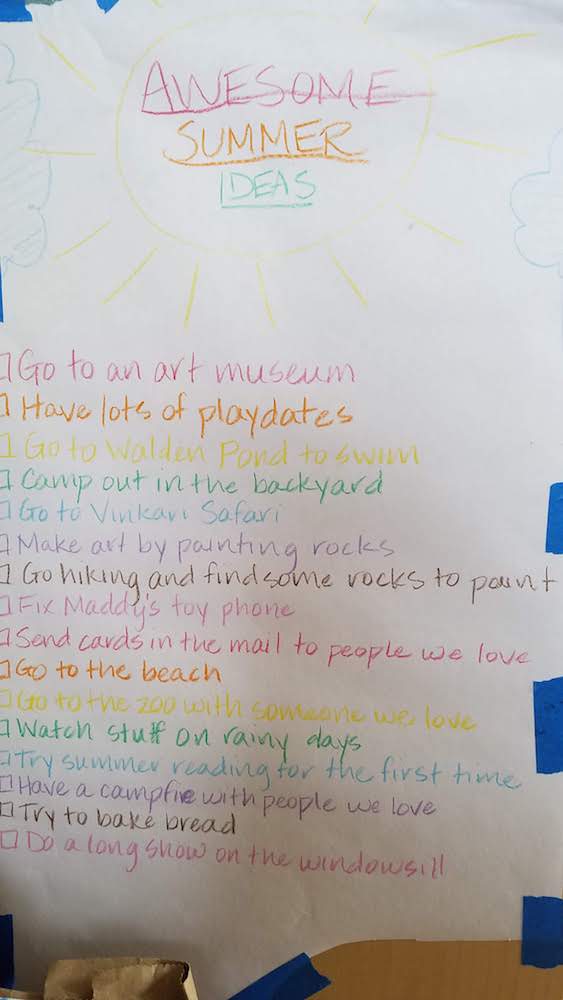 AWESOME
SUMMER
IDEAS
Go to an art museum
Have lots of playdates
Go to Walden Pond to swim
Camp out in the backyard
Go to Vinkari Safari
Make art by painting rocks
Go hiking and find some rocks to paint
Fix Maddy's toy phone
Send cards in the mail to people we love
Go to the beach
Go to the zoo with someone we love
Watch stuff on rainy days
Try summer reading for the first time
Have a campfire with people we love
Try to bake bread
Do a long show on the windowsill